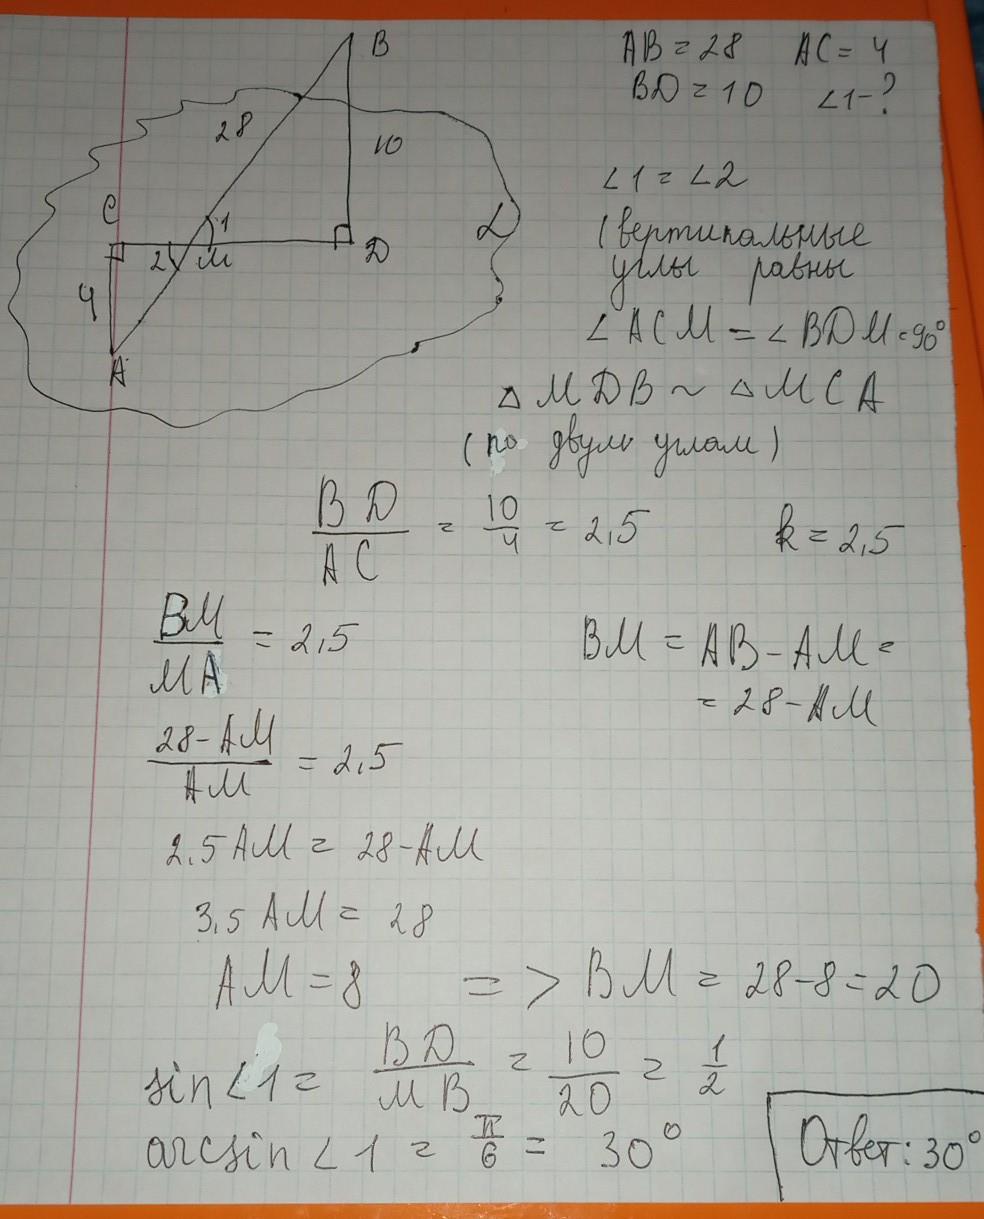 B
28
10
C
1
α
2
M
D
4
A
AB = 28 AC = 4
BD = 10 ∠1-?
∠1 = ∠2
(вертикальные
углы равны
∠ACM = ∠BDM = 90°
△MDB ~ △MCA
(по двум углам)
BD/AC = 10/4 = 2,5 k = 2,5
BM/MA = 2,5 BM = AB - AM =
= 28 - AM
28 - AM/AM = 2,5
2,5 AM = 28 - AM
3,5 AM = 28
AM = 8 => BM = 28 - 8 = 20
sin∠1 = BD/MB = 10/20 = 1/2
arcsin∠1 = π/6 = 30°
Ответ: 30°